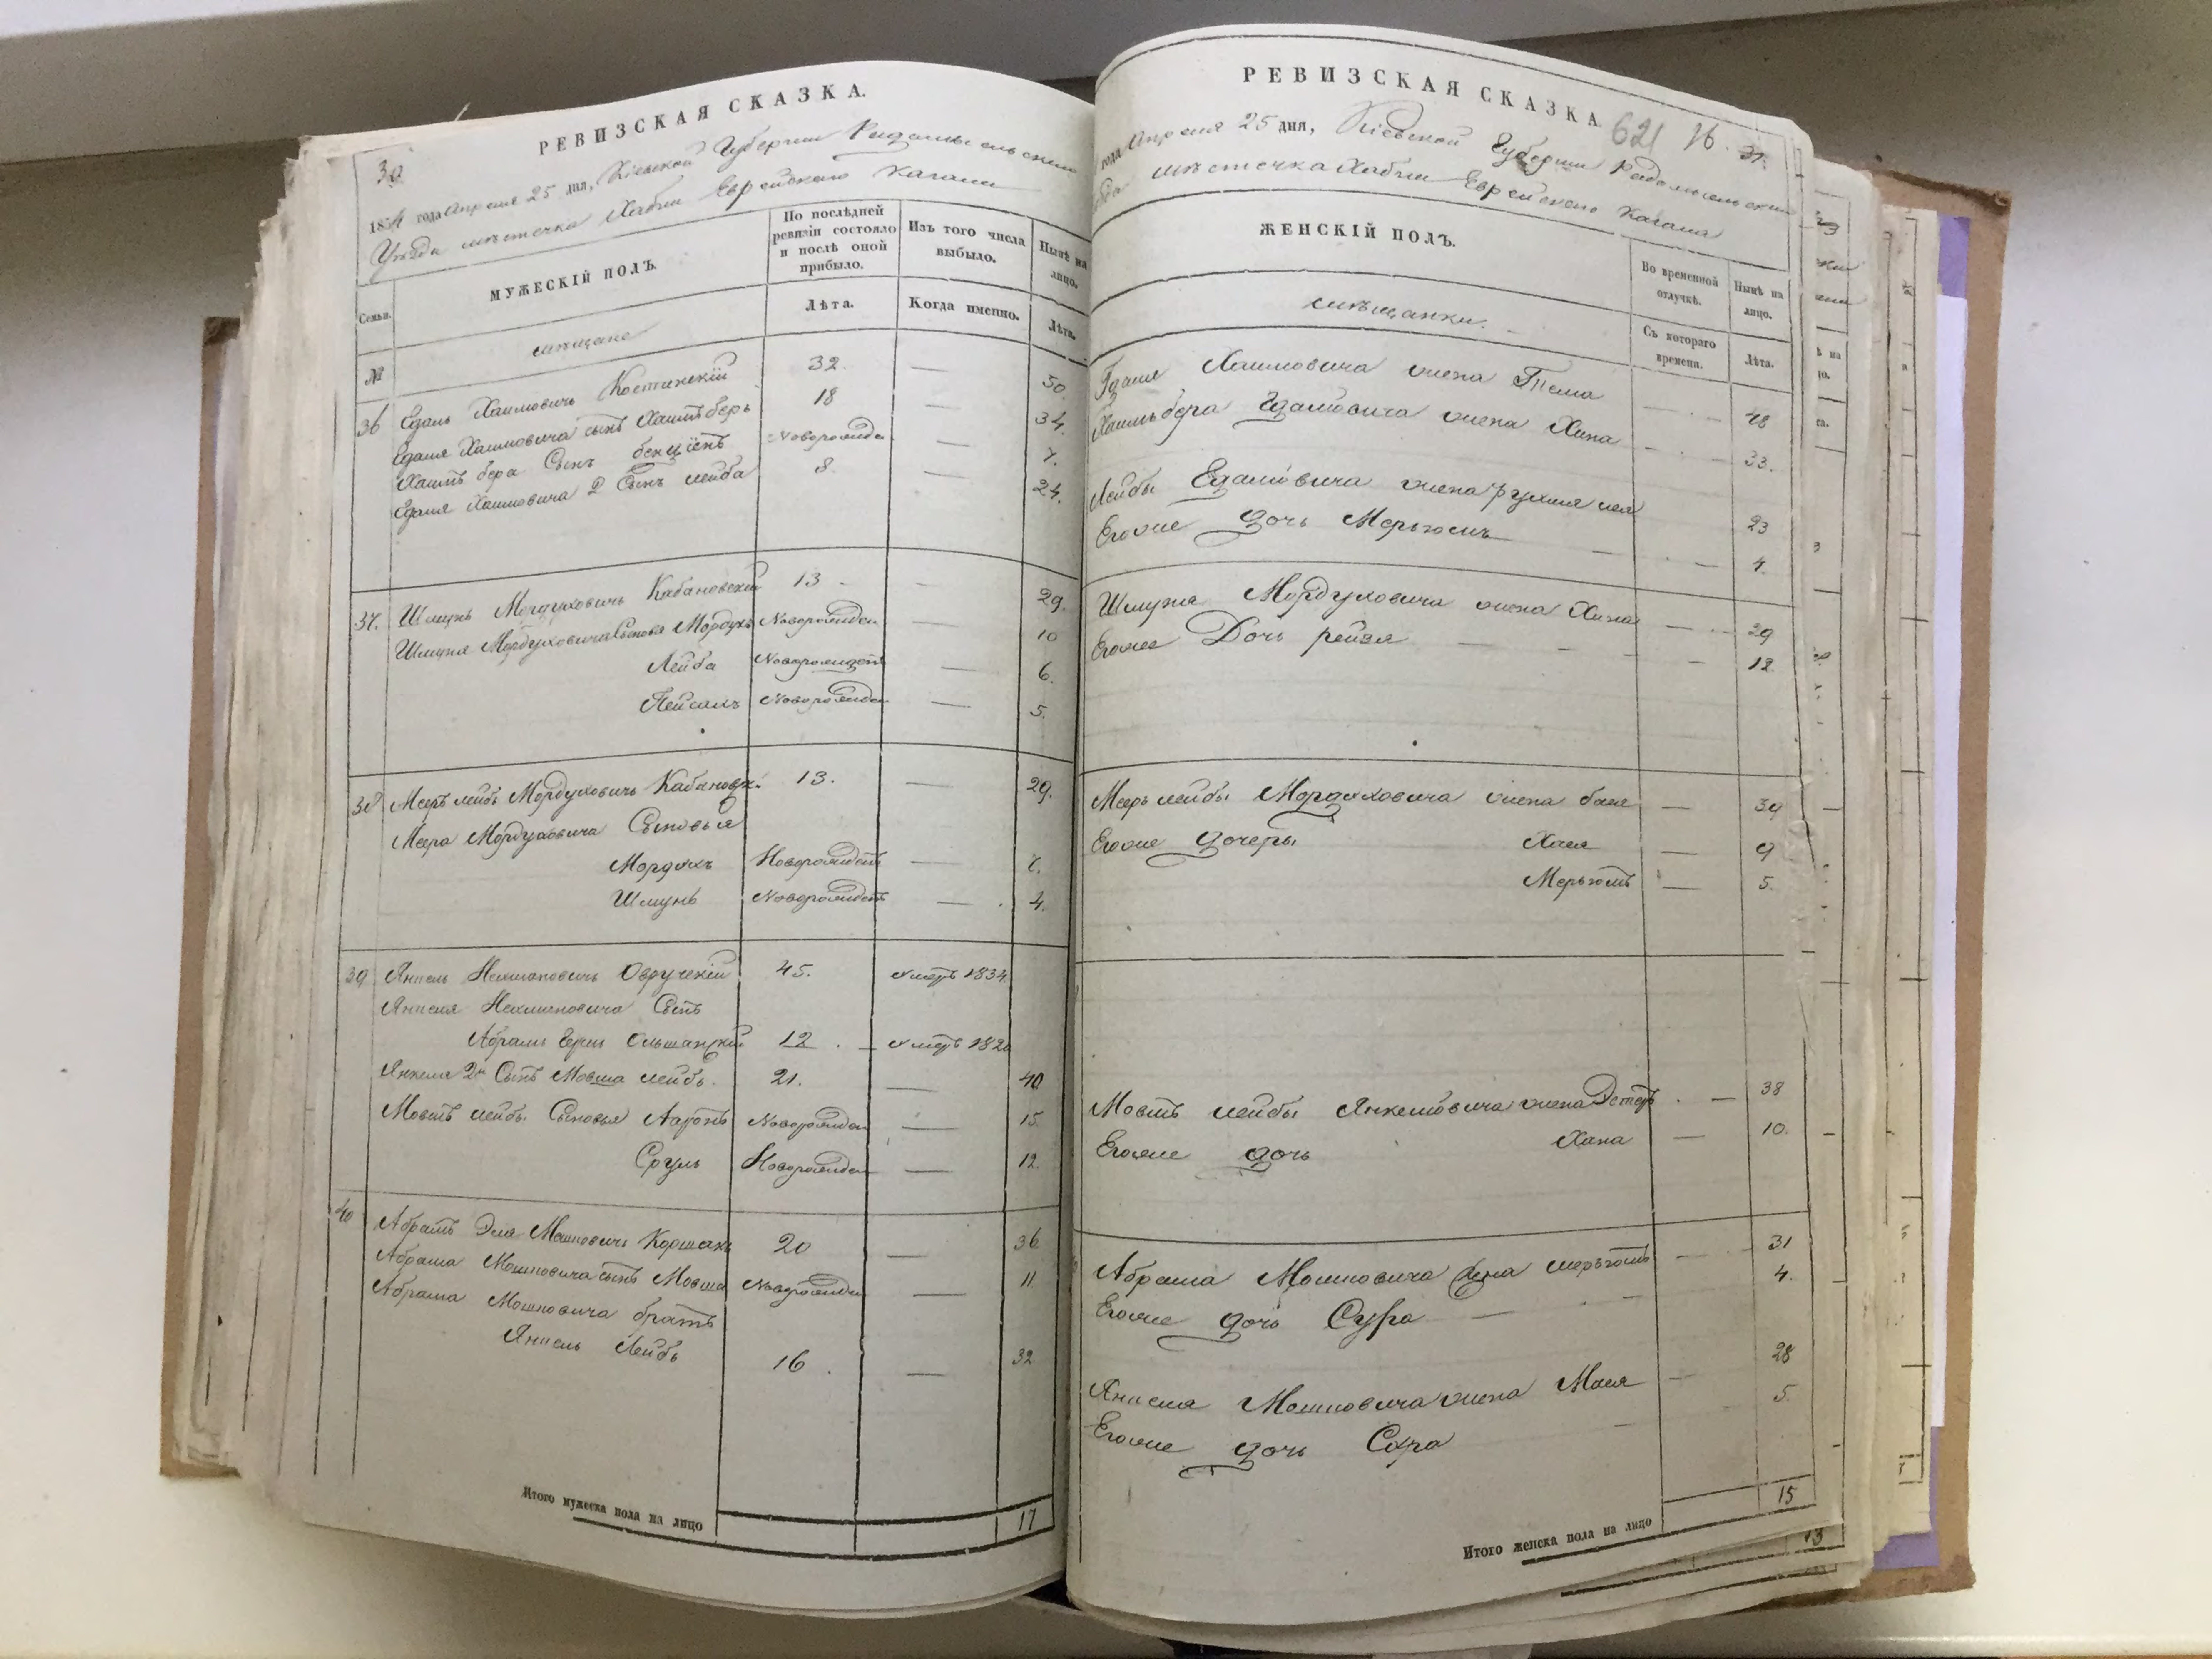 РЕВИЗСКАЯ СКАЗКА.
30
185 года Апреля 25 дня, Кіевской Губерніи Радомысльскаго
Уѣзда мѣстечка Хабни Еврейскаго Кагала
Семьи.
МУЖЕСКІЙ ПОЛЪ.
По послѣдней ревизіи состояло и послѣ оной прибыло.
Изъ того числа выбыло.
Нынѣ на лицо.
Лѣта.
Когда именно.
Лѣта.
№
мѣщане
36 Едаль Хаимовичъ 32 — 50
Едаля Хаимовича сынъ Хаимъ беръ 18 — 34.
Хаимъ бера Сынъ бенціенъ Новорожден — 7.
Едаля Хаимовича 2 Сынъ лейба 8 — 24.
37. Шмунь Мордуховичъ Кабановскій 13 — 29.
Шмуня Мордуховича Сыновя Мордухъ Новорожден — 10
Лейба Новорожденъ — 6.
Пейсахъ Новорожден — 5.
38 Мееръ лейбъ Мордуховичъ Кабановск. 13. — 29.
Меера Мордуховича Сыновья
Мордухъ Новорожденъ —
Шмунь Новорожденъ — 4.
39 Янкель Нехмановичъ Овручскій 45. умеръ 1834
Янкеля Нехмановича Сынъ
Абрамъ Ольшанскій 12. — умеръ
Янкеля 2й Сынъ Мовша лейбъ. 21. — 40
Мовшъ лейбы Сыновья Ааронъ Новорожден — 15.
Сруль Новорожден — 12.
40 Абрамъ Эля Мошковичъ Коршакъ 20 — 36
Абрама Мошковича сынъ Мовша Новорожден — 11
Абрама Мошковича братъ
Янкель Лейбъ 16. — 32
Итого мужеска пола на лицо 17
РЕВИЗСКАЯ СКАЗКА.
621 16. 31.
года Апреля 25 дня, Кіевской Губерніи Радомысльскаго
мѣстечка Хабни Еврейскаго Кагала
ЖЕНСКІЙ ПОЛЪ.
Во временной отлучкѣ.
Нынѣ на лицо.
мѣщанки.
Съ котораго времени.
Лѣта.
Едаля Хаимовича жена Тема — 48
Хаимъ бера Едалевича жена Хана — 33.
Лейбы Едалевича жена 23
Егоже дочь Мерьюмъ — 4.
Шмуня Мордуховича жена Хана — 29
Егоже Дочь рейзя — 12.
Мееръ лейбы Мордуховича жена бася — 30
Егоже дочеры Хая — 9
Мерьюмъ — 5.
Мовшъ лейбы Янкелевича жена Эстеръ — 38
Егоже дочь Хана — 10.
Абрама Мошковича жена мерьюмъ — 31
Егоже дочь Сура — 4.
Янкеля Мошковича жена Мася — 28
Егоже дочь Сура — 5.
Итого женска пола на лицо 15
13